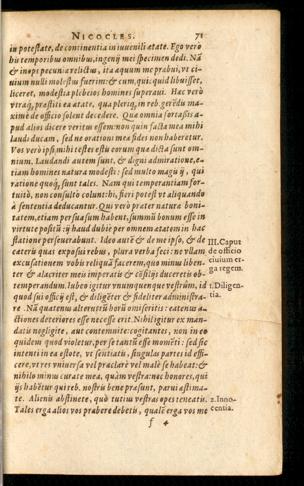 NICOCLES. 71
in potestate, de continentia in iuuenili ætate. Ego verò
his temporibus omnibus, ingenij mei specimen dedi. Nã
& inops pecunia relictus, ita æquum me præbui, vt ci-
uium nulli molestus fuerim: & cum, qui quid libuisset,
liceret, modestia plebeios homines superaui. Hac verò
vtraq́, præstiti ea ætate, qua pleriq, in reb. gerẽdis ma-
ximè de officio solent decedere. Quæ omnia fortassis a-
pud alios dicere veritus essem: non quin facta mea mihi
laudi ducam, sed ne orationi mea fides non haberetur.
Vos verò ipsi, mihi testes estis eorum quæ dicta sunt om-
nium. Laudandi autem sunt, & digni admiratione, e-
tiam homines natura modesti: sed multo magis ij, qui
ratione quoq́, sunt tales. Nam qui temperantiam for-
tuitò, non consultò colunt: hi, fieri potest vt aliquando
à sententia deducantur. Qui verò præter naturæ boni-
tatem, etiam persuasum habent, summũ bonum esse in
virtute positũ: ij haud dubiè per omnem ætatem in hac
statione perseuerabunt. Ideo autẽ & de me ipso, & de
cæteris quæ exposui rebus, plura verba feci: ne vllam
excusationem vobis reliquã facerem, quo minus liben-
ter & alacriter meis imperatis & cõsilijs duceretis ob-
temperandum. Iubeo igitur vnumquenque vestrûm, id
quod sui officij est, & diligẽter & fideliter administra-
re. Nã quatenus alterutrũ horũ omiseritis: eatenus a-
ctiones deteriores esse necesse erit. Nihil igitur ex man-
datis negligite, aut contemnite: cogitantes, non in eo
quidem quod violetur, per se tantũ esse momẽti: sed sic
intenti in ea estote, vt sentiatis, singulas partes id effi-
cere, vt res vniuersa vel præclarè vel malè se habeat: &
nihilo minus curate mea, quàm vestra: nec honores, qui
ijs habẽtur qui reb. nostris bene præsunt, parui æstima-
te. Alienis abstinete, quò tutius vestras opes teneatis.
Tales erga alios vos præbere debetis, qualẽ erga vos me
III. Caput
de officio
ciuium er-
ga regem.
1. Diligen-
tia.
2. Inno-
centia.
f 4